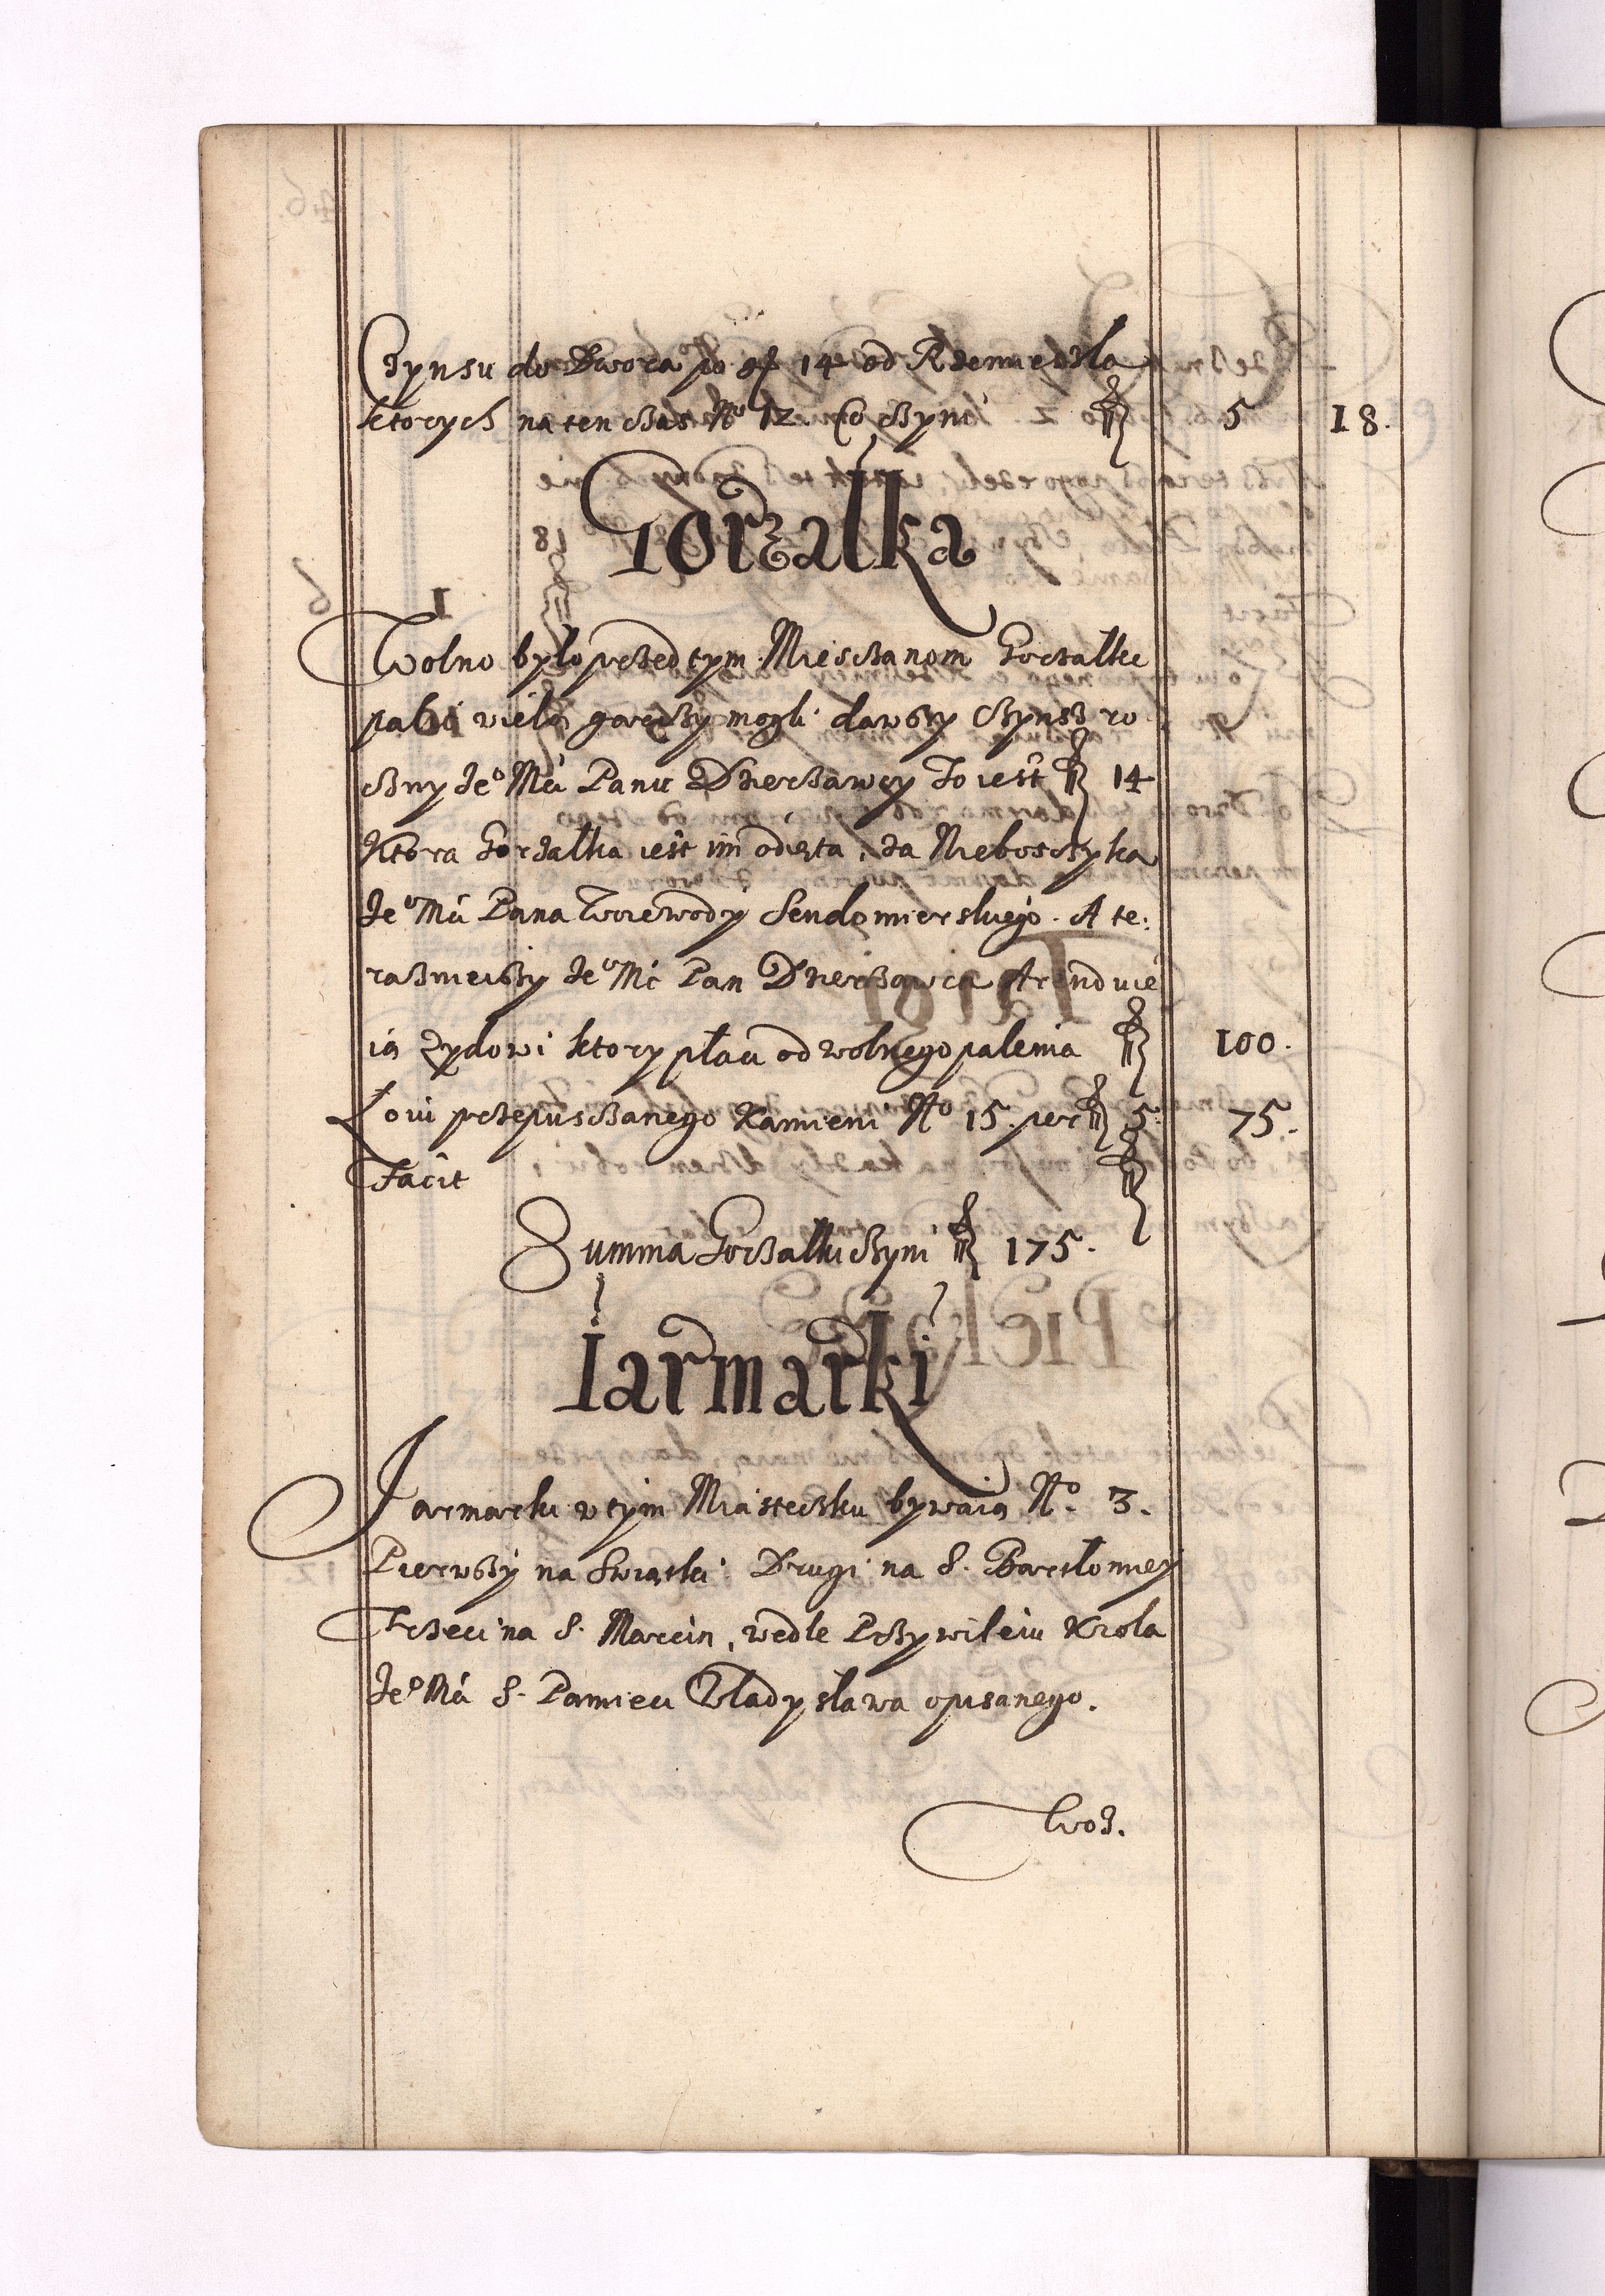 Czynsu do Dwora po gr 14 od Rzemiesla
ktorych na ten czas No 12. Co czyni fl 5 18.
Gorzałka
Wolno było przed tym Miesczanom Gorzałke
palić wielą garczy mogli dawszy Czynsz ro
czny Jeo Mći Panu Dzierzawcy To iest fl 14
Ktora Gorzałka iest im odięta, za Nieboszczyka
Jeo Mći Pana Woiewody Sendomierskiego. A te:
raznieiszy Jeo Mć Pan Dzierzawca Arenduie
ią Zydowi ktory płaci od wolnego palenia fl 100.
Łoiu przepusczanego Kamieni No 15. per fl 5. 75.
Facit fl
Summa Gorzałki czyni fl 175.
Iarmarki
Jarmarki w tym Miasteczku bywaią No. 3.
Pierwszy na Swiątki. Drugi na S. Bartłomiey
Trzeci na S. Marcin, wedle Przywileiu Krola
Jeo Mći S. Pamieci Władysława opisanego.
Woz.